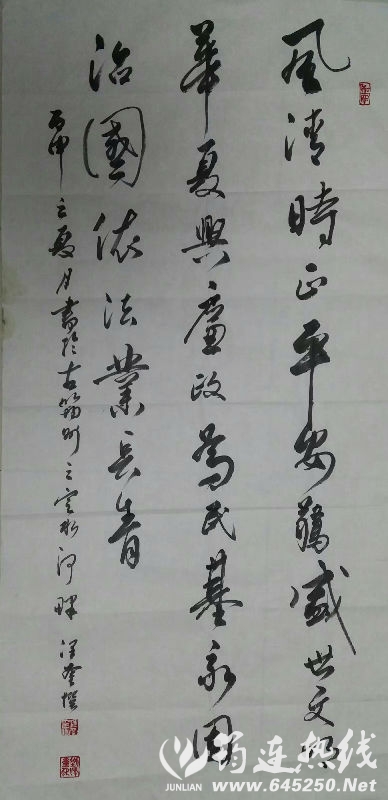 風清時正平安盛世文明
華夏興廉政為民基永固
治國依法業長青
丙申之夏月書於古筠州之定水河畔
筠连热线
JUNLIAN www.645250.Net